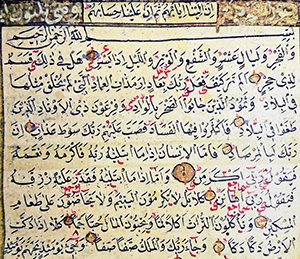 ان الينا ايابهم ثم ان علينا حسابهم
بسم الله الرحمن الرحيم
وَالْفَجْرِ وَلَيَالٍ عَشْرٍ وَالشَّفْعِ وَالْوَتْرِ وَالَّيْلِ اِذَا يَسْرِ هَلْ فِي ذٰلِكَ قَسَمٌ
لِذِي حِجْرٍ اَلَمْ تَرَ كَيْفَ فَعَلَ رَبُّكَ بِعَادٍ اِرَمَ ذَاتِ الْعِمَادِ الَّتِي لَمْ يُخْلَقْ مِثْلُهَا
فِي الْبِلَادِ وَثَمُودَ الَّذِينَ جَابُوا الصَّخْرَ بِالْوَادِ وَفِرْعَوْنَ ذِي الْاَوْتَادِ الَّذِينَ
فِي الْبِلَادِ فَاَكْثَرُوا فِيهَا الْفَسَادَ فَصَبَّ عَلَيْهِمْ رَبُّكَ سَوْطَ عَذَابٍ اِنَّ
رَبَّكَ لَبِالْمِرْصَادِ فَاَمَّا الْاِنْسَانُ اِذَا مَا ابْتَلٰيهُ رَبُّهُ فَاَكْرَمَهُ وَنَعَّمَهُ
فَيَقُولُ رَبِّي اَكْرَمَنِ وَاَمَّا اِذَا مَا ابْتَلٰيهُ فَقَدَرَ عَلَيْهِ رِزْقَهُ
فَيَقُولُ رَبِّي اَهَانَنِ كَلَّا بَلْ لَا يُكْرِمُونَ الْيَتِيمَ وَلَا يَحَاضُّونَ عَلٰى طَعَامِ
الْمِسْكِينِ وَيَأْكُلُونَ التُّرَاثَ اَكْلًا لَمًّا وَيُحِبُّونَ الْمَالَ حُبًّا جَمًّا كَلَّا اِذَا دُكَّتِ
الْاَرْضُ دَكًّا دَكًّا وَجَاءَ رَبُّكَ وَالْمَلَكُ صَفًّا صَفًّا وَجِيءَ يَوْمَئِذٍ